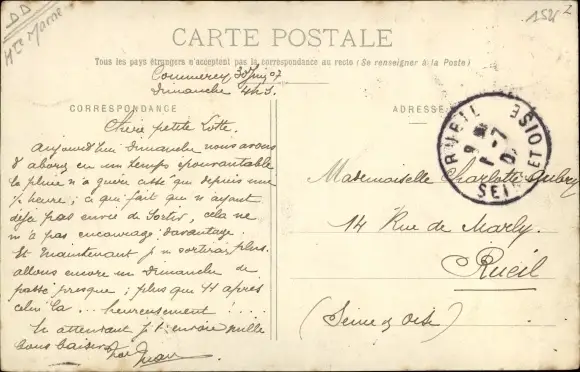 DD
Hte Marne
1521
CARTE POSTALE
Tous les pays étrangers n'acceptent pas la correspondance au recto (Se renseigner à la Poste)
Commercy 30 Juin 07
Dimanche 4h S.
CORRESPONDANCE
ADRESSE
RUEIL
SEINE ET OISE
Chère petite Lotte.
Aujourd'hui Dimanche nous avons
d'abord eu un temps épouvantable
la pluie n'a guère cessé que depuis une
½ heure; ce qui fait que n'ayant
déjà pas envie de sortir, cela ne
m'a pas encouragé davantage.
Et maintenant je n sortirai plus.
allons encore un Dimanche de
passé presque; plus que 11 après
celui la ... heureusement! ...
En attendant je t'envoie mille
bons baisers
Mademoiselle Charlotte Aubry
14 Rue de Marly.
Rueil
(Seine & Oise)